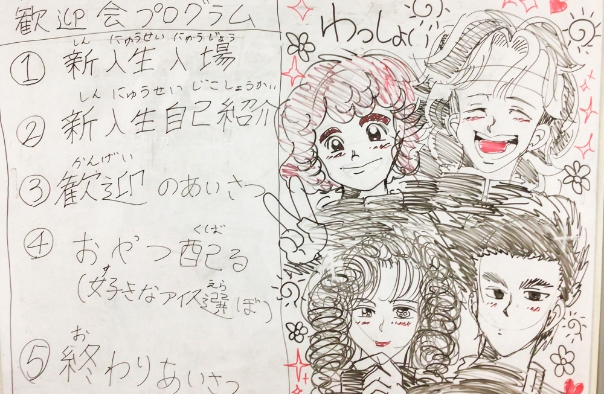 歓迎会プログラム
わっしょい
しんにゅうせいにゅうじょう
① 新入生入場
しんにゅうせいじこしょうかい
② 新入生自己紹介
かんげい
③ 歓迎のあいさつ
くば
④ おやつ配る
す えら
(好きなアイス選ぼ)
お
⑤ 終わりあいさつ